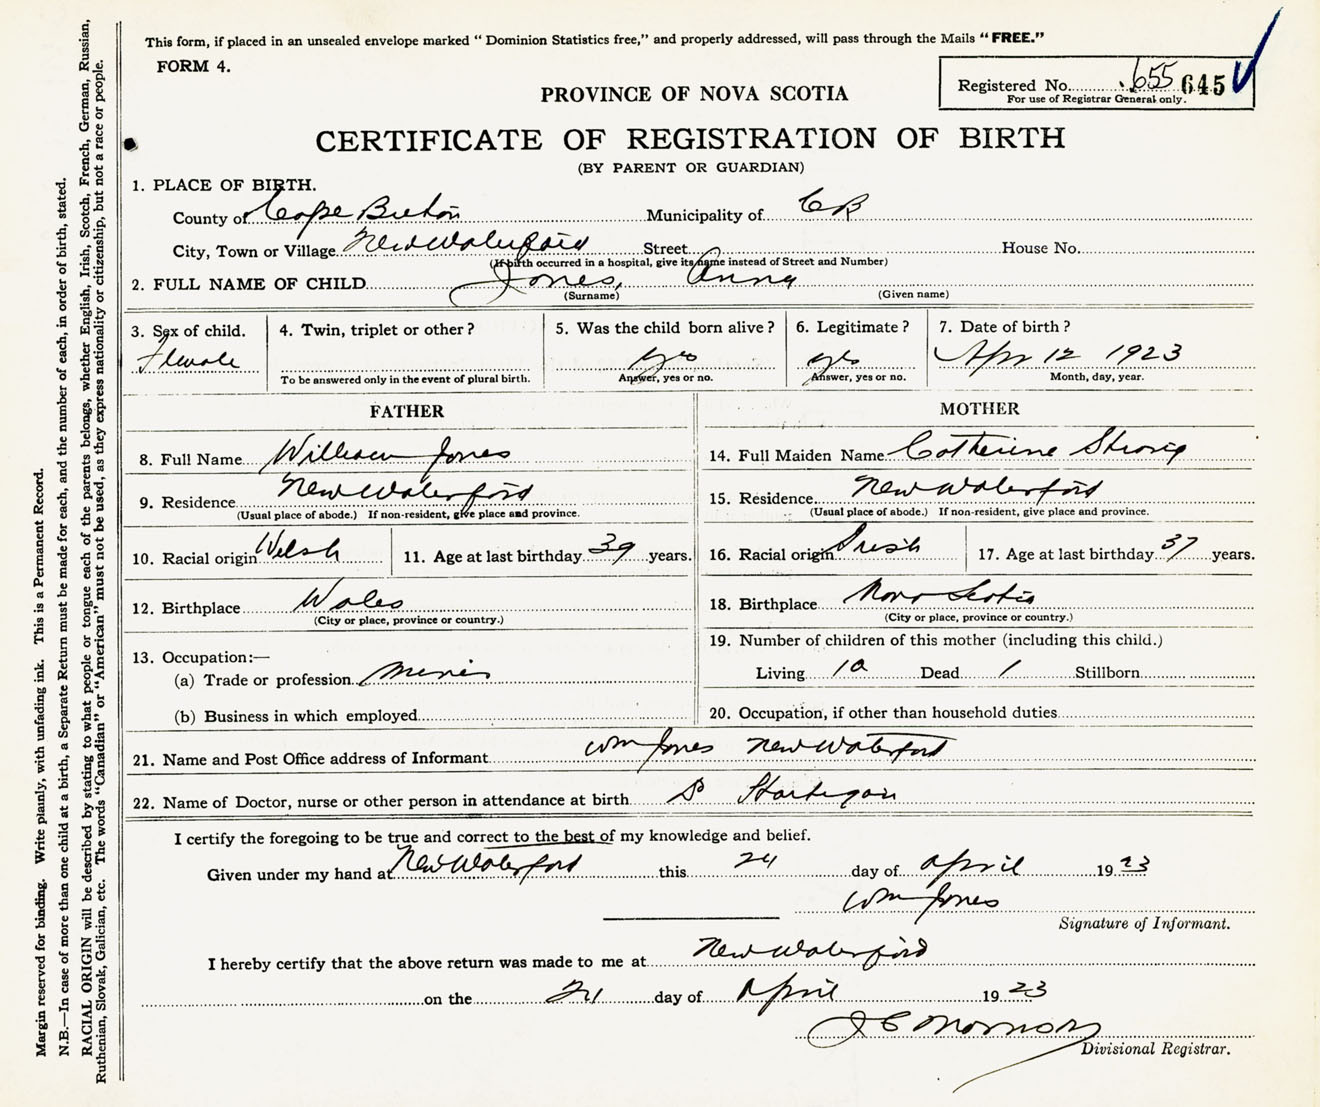 This form, if placed in an unsealed envelope marked " Dominion Statistics free," and properly addressed, will pass through the Mails " FREE."
FORM 4.
Registered No. 655 645
For use of Registrar General only.
PROVINCE OF NOVA SCOTIA
CERTIFICATE OF REGISTRATION OF BIRTH
(BY PARENT OR GUARDIAN)
1. PLACE OF BIRTH.
County of Cape Breton Municipality of CB
City, Town or Village New Waterford Street House No.
(If birth occurred in a hospital, give its name instead of Street and Number)
2. FULL NAME OF CHILD Jones, Anna
(Surname) (Given name)
3. Sex of child. 4. Twin, triplet or other ? 5. Was the child born alive ? 6. Legitimate ? 7. Date of birth ?
Female yes yes Apr 12 1923
To be answered only in the event of plural birth. Answer, yes or no. Answer, yes or no. Month, day, year.
FATHER MOTHER
8. Full Name William Jones 14. Full Maiden Name Catherine Strong
9. Residence New Waterford 15. Residence New Waterford
(Usual place of abode.) If non-resident, give place and province. (Usual place of abode.) If non-resident, give place and province.
10. Racial origin Welsh 11. Age at last birthday 39 years. 16. Racial origin Irish 17. Age at last birthday 37 years.
12. Birthplace Wales 18. Birthplace Nova Scotia
(City or place, province or country.) (City or place, province or country.)
13. Occupation:— 19. Number of children of this mother (including this child.)
(a) Trade or profession Miner Living 10 Dead 1 Stillborn
(b) Business in which employed 20. Occupation, if other than household duties
21. Name and Post Office address of Informant Wm Jones New Waterford
22. Name of Doctor, nurse or other person in attendance at birth Hartigan
I certify the foregoing to be true and correct to the best of my knowledge and belief.
Given under my hand at New Waterford this 24 day of April 19 23
Wm Jones
Signature of Informant.
I hereby certify that the above return was made to me at New Waterford
on the 24 day of April 19 23
Divisional Registrar.
Margin reserved for binding. Write plainly, with unfading ink. This is a Permanent Record.
N.B.—In case of more than one child at a birth, a Separate Return must be made for each, and the number of each, in order of birth, stated.
RACIAL ORIGIN will be described by stating to what people or tongue each of the parents belongs, whether English, Irish, Scotch, French, German, Russian,
Ruthenian, Slovak, Galician, etc. The words "Canadian" or "American" must not be used, as they express nationality or citizenship, but not a race or people.